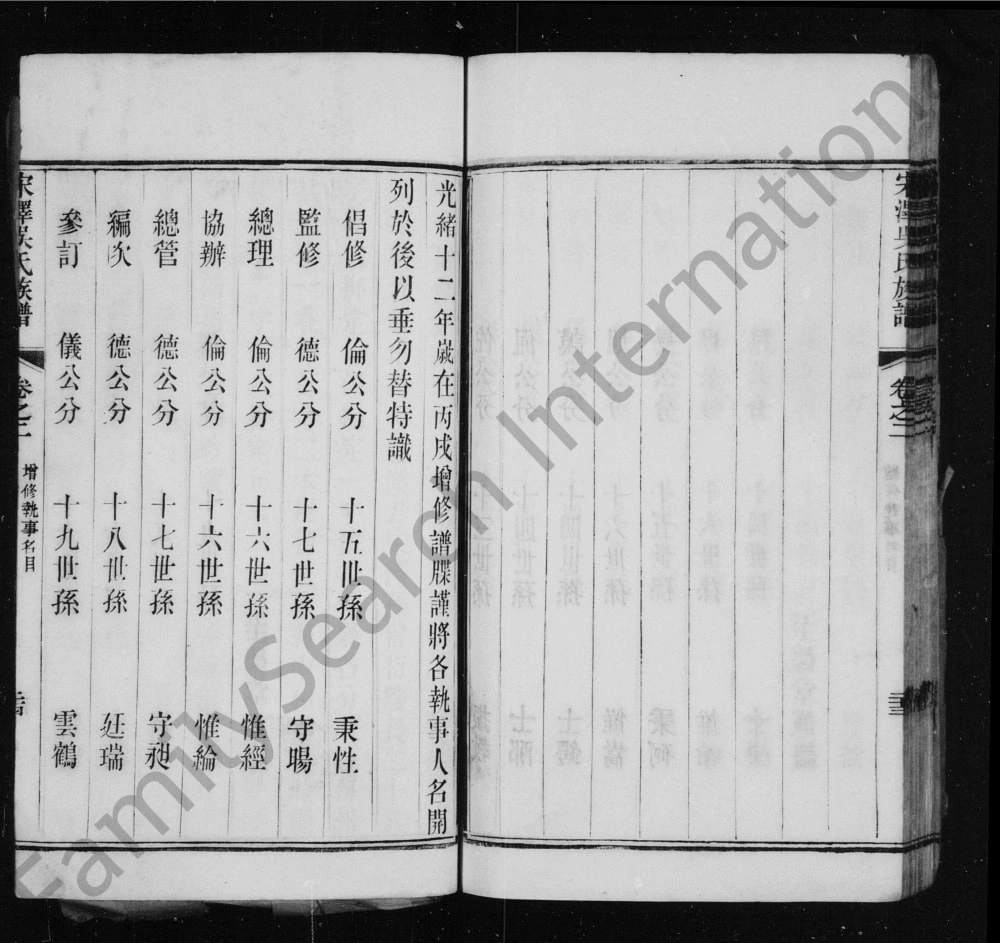 光緒十二年歲在丙戌增修譜牒謹將各執事人名開
列於後以垂勿替特識
倡修 倫公分 十五世孫 秉性
監修 德公分 十七世孫 守暘
總理 倫公分 十六世孫 惟經
協辦 倫公分 十六世孫 惟綸
總管 德公分 十七世孫 守昶
編次 德公分 十八世孫 廷瑞
參訂 儀公分 十九世孫 雲鶴
宋澤吳氏族譜 卷之一 增修執事名目
宋澤吳氏族譜 卷之一
FamilySearch International